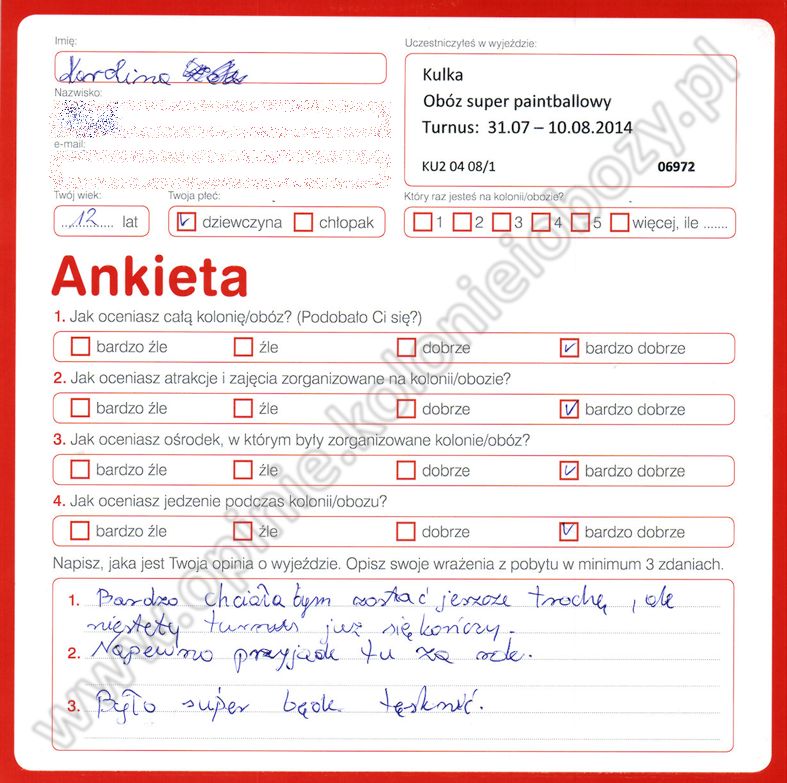 Imię:
Karolina
Uczestniczyłeś w wyjeździe:
Kulka
Obóz super paintballowy
Turnus: 31.07 – 10.08.2014
KU2 04 08/1 06972
Nazwisko:
e-mail:
Twój wiek:
12 lat
Twoja płeć:
dziewczyna chłopak
Który raz jesteś na kolonii/obozie?
1 2 3 4 5 więcej, ile .......
Ankieta
1. Jak oceniasz całą kolonię/obóz? (Podobało Ci się?)
bardzo źle źle dobrze bardzo dobrze
2. Jak oceniasz atrakcje i zajęcia zorganizowane na kolonii/obozie?
bardzo źle źle dobrze bardzo dobrze
3. Jak oceniasz ośrodek, w którym były zorganizowane kolonie/obóz?
bardzo źle źle dobrze bardzo dobrze
4. Jak oceniasz jedzenie podczas kolonii/obozu?
bardzo źle źle dobrze bardzo dobrze
Napisz, jaka jest Twoja opinia o wyjeździe. Opisz swoje wrażenia z pobytu w minimum 3 zdaniach.
1. Bardzo chciała bym zostać jeszcze trochę, ale
niestety turnus już się kończy.
2. Napewno przyjadę tu za rok.
3. Było super będę tęsknić.
www.opinie.kolonieiobozy.pl